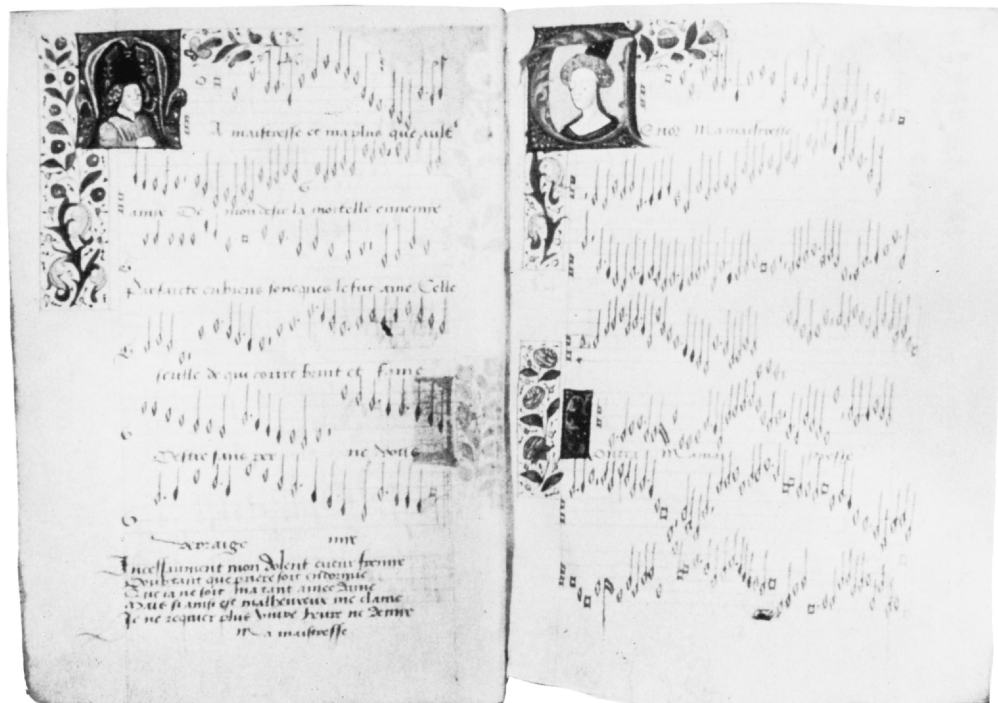 A maistresse et ma plus que ault
amie De mon desir la mortelle ennemye
Parfaicte en biens se oncques le fut ame Celle
seulle de qui court bruit et fame
Destre sans per ne vous
verraige mye
Incessamment mon dolent cueur fremie
Doubtant que pitie soit endormie
Que ja ne soit ma tant amee dame
Mais si ainsi est malheureux me clame
Je ne requier plus vivre heure ne demie
Ma maistresse
Enor Ma maistresse
Contra Ma mais tresse